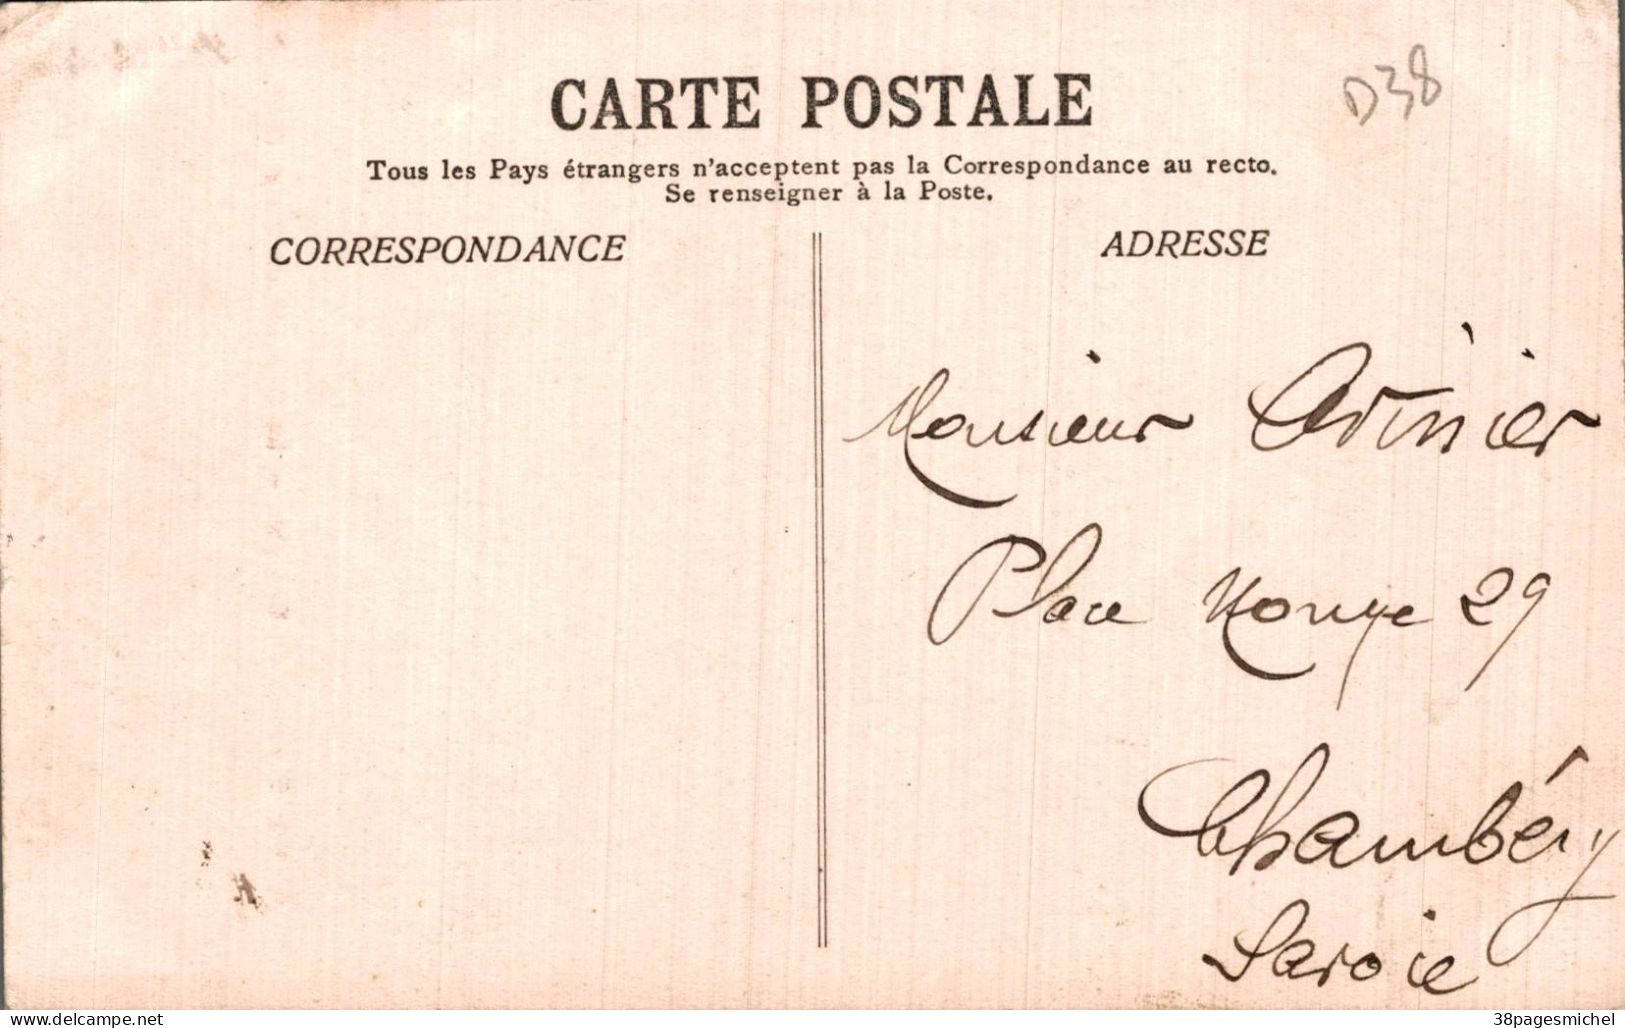 D38
CARTE POSTALE
Tous les Pays étrangers n'acceptent pas la Correspondance au recto.
Se renseigner à la Poste.
CORRESPONDANCE
ADRESSE
Monsieur
Place Monge 29
Chambéry
Savoie
www.delcampe.net
38pagesmichel